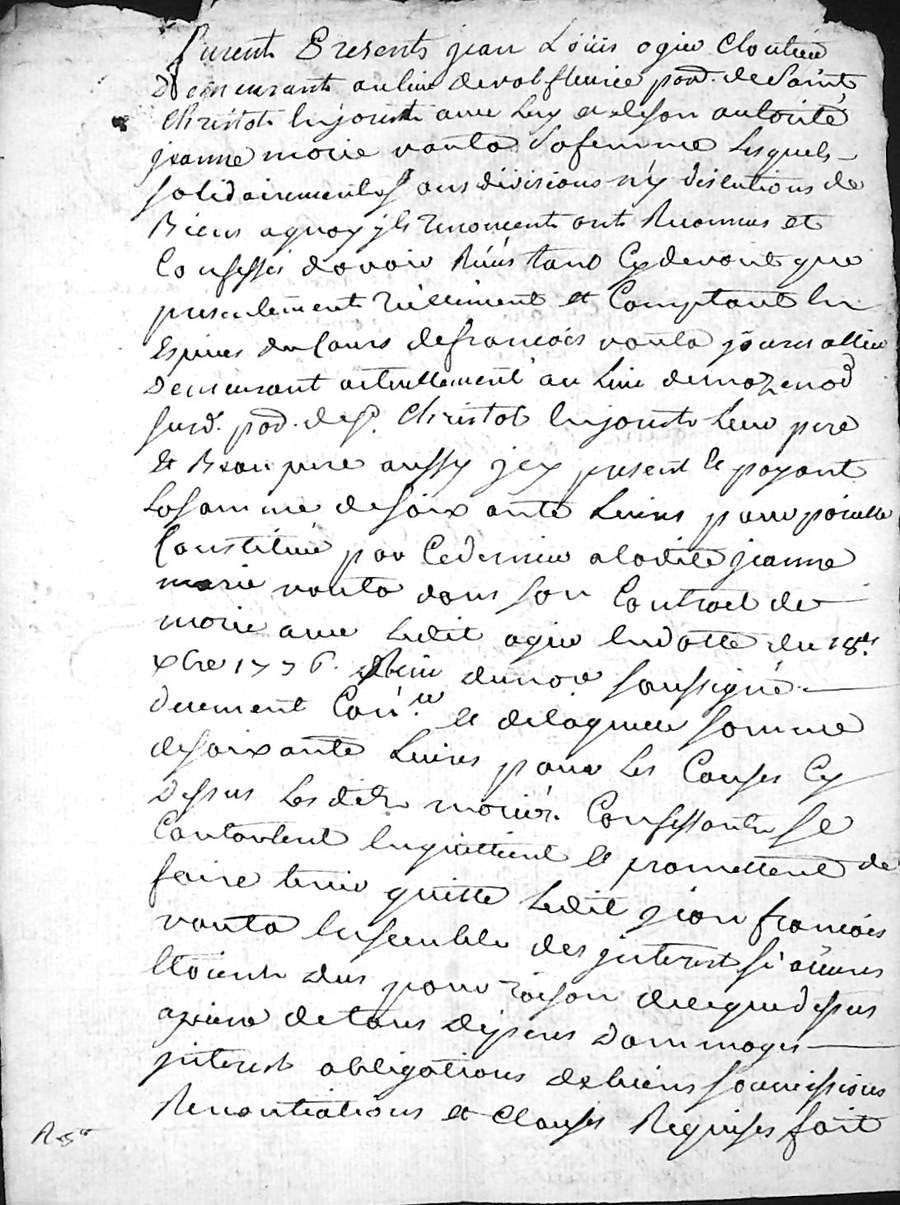 furent Presents jean Louis ogier Cloutier
Demeurant au lieu de valfleurie pard. de Saint
Christot En jarest avec Luy et de son autorité
jeanne marie vanta Sa femme Lesquels
solidairement sans divisions n'y discutions de
Biens a quoy jls renoncent ont Reconnus et
Confessés davoir Reçus tant Cy devant que
presentement réellement et Comptant En
Espèces du Cours de francois vanta journallier
Demeurant actuellement au Lieu de
surd. pard. de St. Christot En jarest Leur pere
Et Beau pere aussy jcy present Et payant
La somme de soixante Livres pour pareille
Constituée par Ce dernier a ladite jeanne
marie vanta dans son Contract de
marie avec Ledit ogier En datte du 18e
xbre 1776. du not.re soussigné
Duement Con.lé Et de laquelle somme
de soixante Livres pour Les Causes Cy
Dessus Les dits mariés Confessants Se
Contantent En quittent Et promettent de
faire tenir quitte Ledit jean francois
vanta Ensemble des jnterest si aucuns
Etoient dus pour raison de ce que dessus
a peine de tous Dépens Dommages
jnterest obligations de biens soumissions
Renontiations et Clauses Requises fait